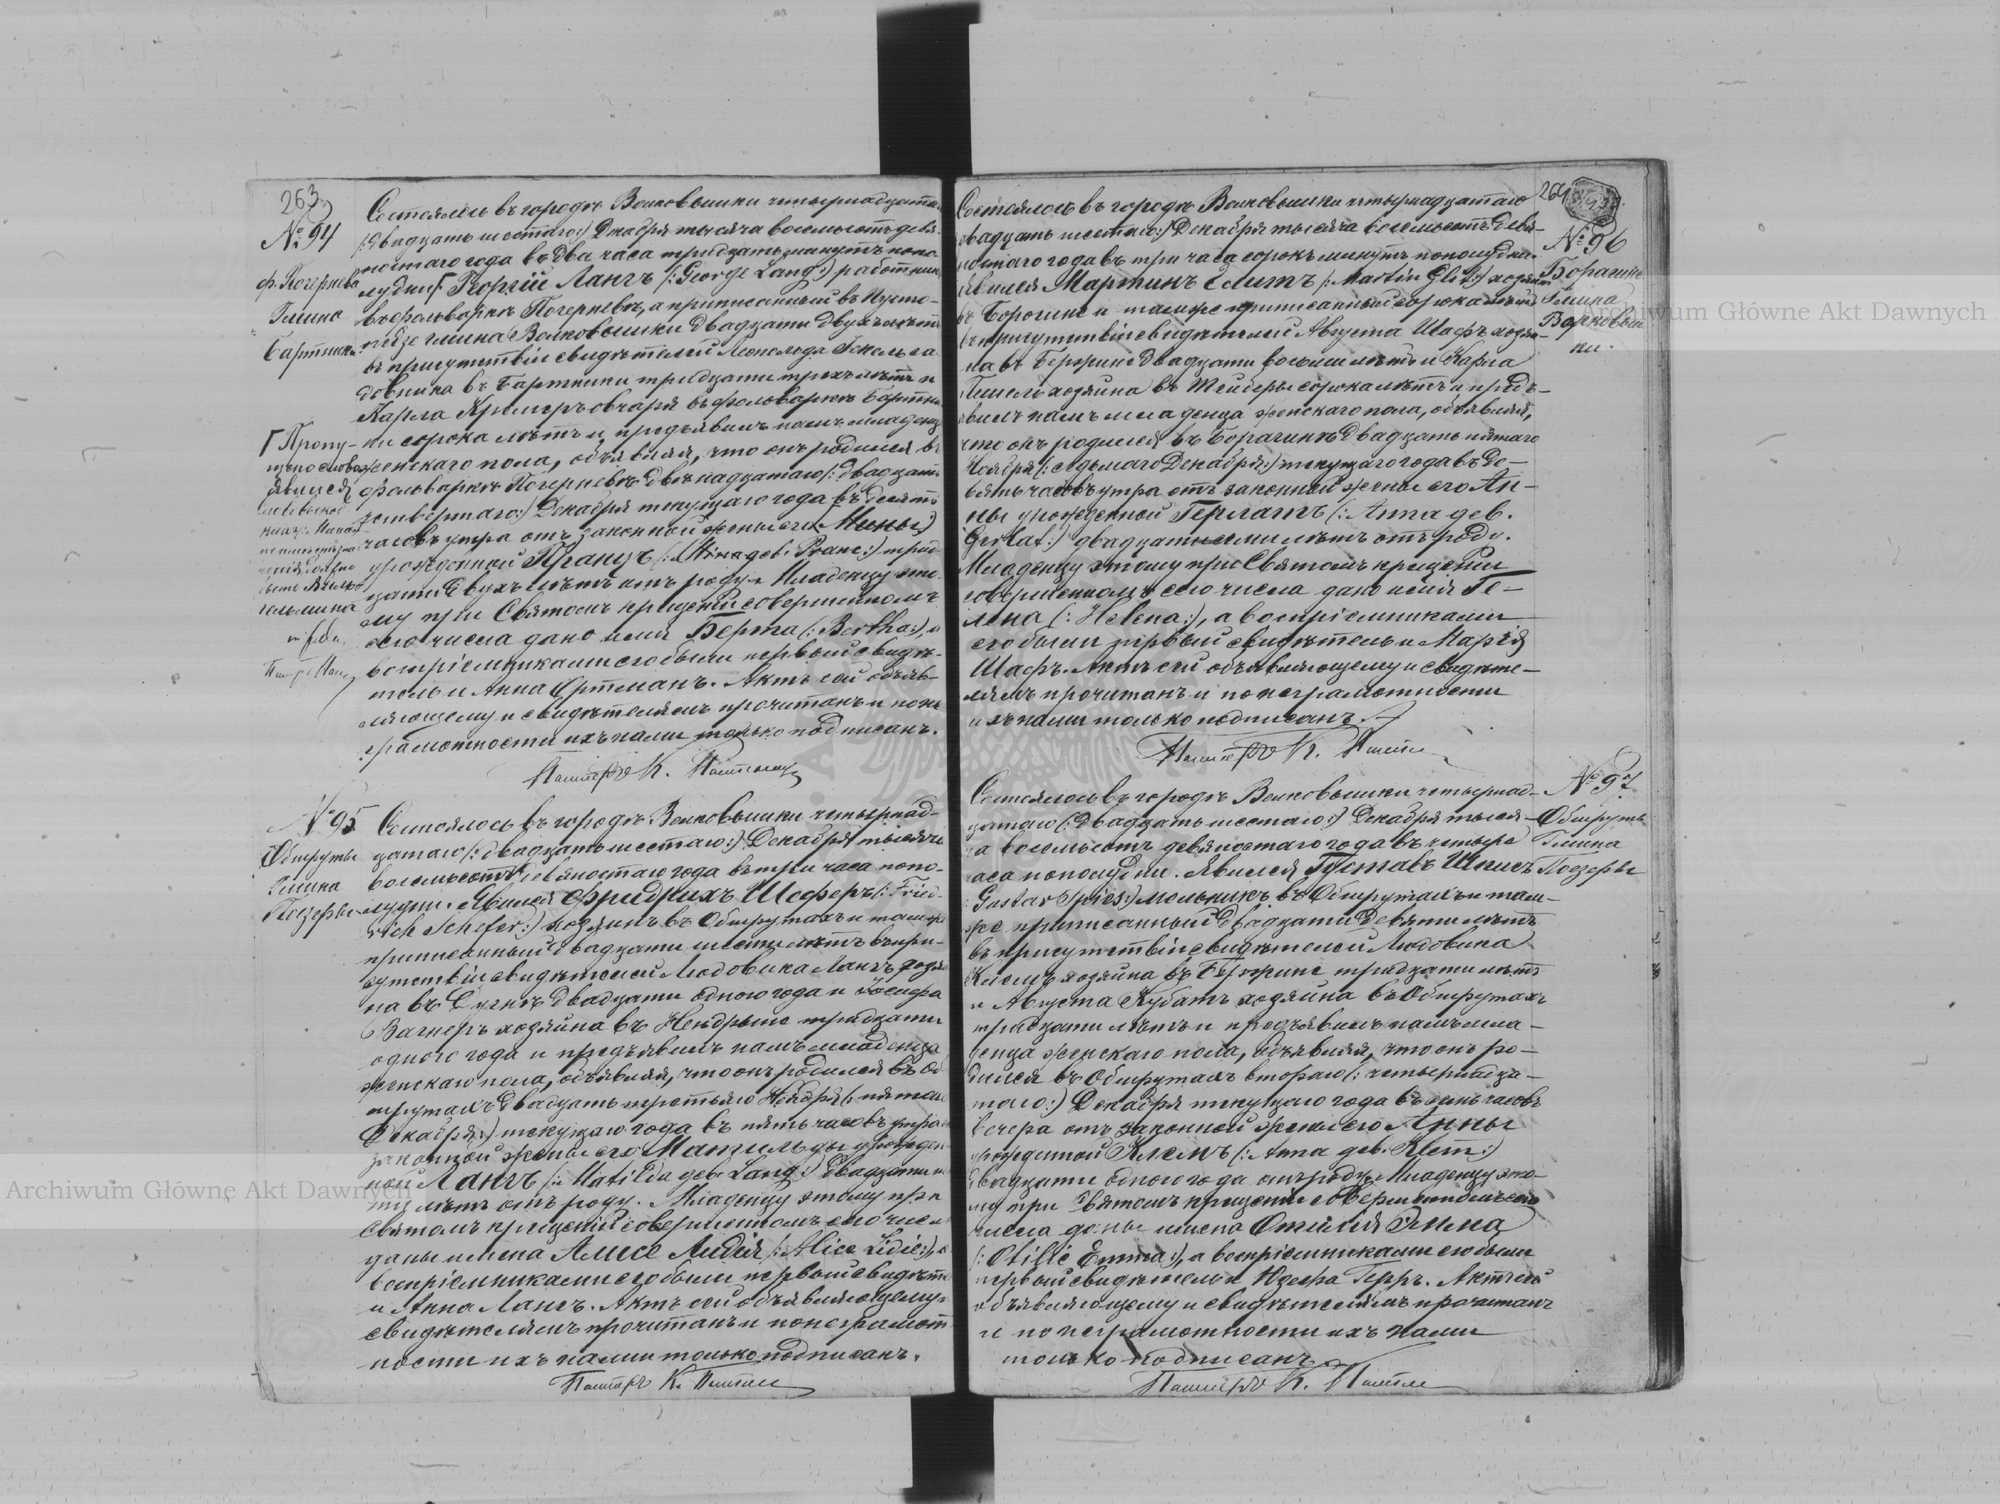 263
№ 94
ф. Погернева
Гмина
Бартники
Состоялось въ городѣ Волковышки четырнадцата-
(: двадцать шестаго:) Декабря тысяча восемьсотъ девя-
ностаго года въ два часа тридцать минутъ попо-
лудни. Георгій Лангъ (: George Lang:) работникъ
въ фольваркѣ Погерневѣ, а приписанный въ Пусто-
гмина Волковышки двадцати двухъ лѣтъ
въ присутствіи свидѣтелей Леопольда са-
довника въ Бартники тридцати трехъ лѣтъ и
Карла овчаря въ фольваркѣ Бартни-
ки сорока лѣтъ и предъявилъ намъ младенца
женскаго пола, объявляя, что онъ родился въ
фольваркѣ Погерневѣ двѣнадцатаго (: двадцать
четвертаго:) Декабря текущаго года въ десять
часовъ утра отъ законной жены его Мины
урожденной Пранцъ (: Mina geb. Pranc:) трид-
цати двухъ лѣтъ отъ роду. Младенцу это-
му при Святомъ крещеніи совершенномъ
сего числа дано имя Берта (: Bertha:), а
воспріемниками его были первый свидѣ-
тель и Анна Ортманъ. Актъ сей объяв-
ляющему и свидѣтелямъ прочитанъ и по не-
грамотности ихъ нами только подписанъ.
Пасторъ К.
Пропу-
щено слово
явился
№ 95
Обшруты
Гмина
Поезеры
Состоялось въ городѣ Волковышки четырнад-
цатаго (: двадцать шестаго:) Декабря тысяча
восемьсотъ девяностаго года въ три часа попо-
лудни. Явился Фридрихъ Шеферъ (: Fried-
rich Schefer:) хозяинъ въ Обшрутахъ и тамже
приписанный двадцати шести лѣтъ въ при-
сутствіи свидѣтелей Людовика Лангъ хозяи-
на въ двадцати одного года и Іосифа
Вагнеръ хозяина въ тридцати
одного года и предъявилъ намъ младенца
женскаго пола, объявляя, что онъ родился въ Об-
шрутахъ двадцать третьяго Ноября (: пятаго
Декабря:) текущаго года въ пять часовъ утра
законной жены его Матильды урожден-
ной Лангъ (: Matilda geb. Lang:) двадцати
лѣтъ отъ роду. Младенцу этому при
Святомъ крещеніи совершенномъ сего числа
даны имена Алисе Лидія (: Alice Lidie:), а
воспріемниками его были первый свидѣтель
и Анна Лангъ. Актъ сей объявляющему и
свидѣтелямъ прочитанъ и по неграмот-
ности ихъ нами только подписанъ.
Пасторъ К.
264
№ 96
Гмина
Волковыш-
ки.
Состоялось въ городѣ Волковышки четырнадцатаго
двадцать шестаго:) Декабря тысяча восемьсотъ девя-
ностаго года въ три часа сорокъ минутъ пополудни.
Явился Мартинъ Елитъ (: Martin Elit:) хозяинъ
въ и тамже приписанный сорока лѣтъ
въ присутствіи свидѣтелей Августа Шафъ хозяи-
на въ двадцати восьми лѣтъ и Карла
хозяина въ сорока лѣтъ и предъ-
явилъ намъ младенца женскаго пола, объявляя,
что онъ родился въ двадцать пятаго
Ноября (: седьмаго Декабря:) текущаго года въ де-
вять часовъ утра отъ законной жены его Ан-
ны урожденной Герлатъ (: Anna geb.
Gerlat:) двадцати семи лѣтъ отъ роду.
Младенцу этому при Святомъ крещеніи
совершенномъ сего числа дано имя Ге-
лена (: Helena:), а воспріемниками
его были первый свидѣтель и Марія
Шафъ. Актъ сей объявляющему и свидѣте-
лямъ прочитанъ и по неграмотности
ихъ нами только подписанъ.
Пасторъ К.
№ 97
Обшруты
Гмина
Поезеры
Состоялось въ городѣ Волковышки четырнад-
цатаго (: двадцать шестаго:) Декабря тыся-
ча восемьсотъ девяностаго года въ четыре
часа пополудни. Явился Густавъ Шписъ
(: Gustav Spies:) мельникъ въ Обшрутахъ и там-
же приписанный двадцати девяти лѣтъ
въ присутствіи свидѣтелей Людовика
Клемъ хозяина въ тридцати лѣтъ
и Августа Кубатъ хозяина въ Обшрутахъ
тридцати лѣтъ и предъявилъ намъ мла-
денца женскаго пола, объявляя, что онъ ро-
дился въ Обшрутахъ втораго (: четырнадца-
таго:) Декабря текущаго года въ часовъ
вечера отъ законной жены его Анны
урожденной Клемъ (: Anna geb. Klem:)
двадцати одного года отъ роду. Младенцу это-
му при Святомъ крещеніи совершенномъ сего
числа даны имена Отилія Эмма
(: Otilie Emma:), а воспріемниками его были
первый свидѣтель и Юзефа Герръ. Актъ сей
объявляющему и свидѣтелямъ прочитанъ
и по неграмотности ихъ нами
только подписанъ.
Пасторъ К.
Archiwum Główne Akt Dawnych
Archiwum Główne Akt Dawnych